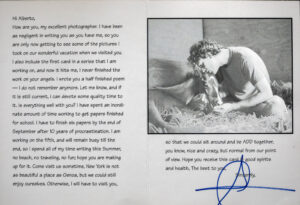 Hi Alberto,
How are you, my excellent photographer. I have been
as negligent in writing you as you have me, so you
are only now getting to see some of the pictures I
took on our wonderful vacation when we visited you.
I also include the first card in a series that I am
working on, and now it hits me, I never finished the
work on your angels. I wrote you a half finished poem
— I do not remember anymore. Let me know, and if
it is still current, I can devote some quality time to
it. Is everything well with you? I have spent an inordi-
nate amount of time working to get papers finished
for school. I have to finish six papers by the end of
September after 10 years of procrastination. I am
working on the fifth, and will remain busy till the
end, so I spend all of my time writing this Summer,
no beach, no traveling, no fun; hope you are making
up for it. Come visit us sometime, New York is not
as beautiful a place as Genoa, but we could still
enjoy ourselves. Otherwise, I will have to visit you,
so that we could sit around and be ADD together,
you know, nice and crazy, but normal from our point
of view. Hope you receive this card in good spirits
and health. The best to you.
Sincerely,